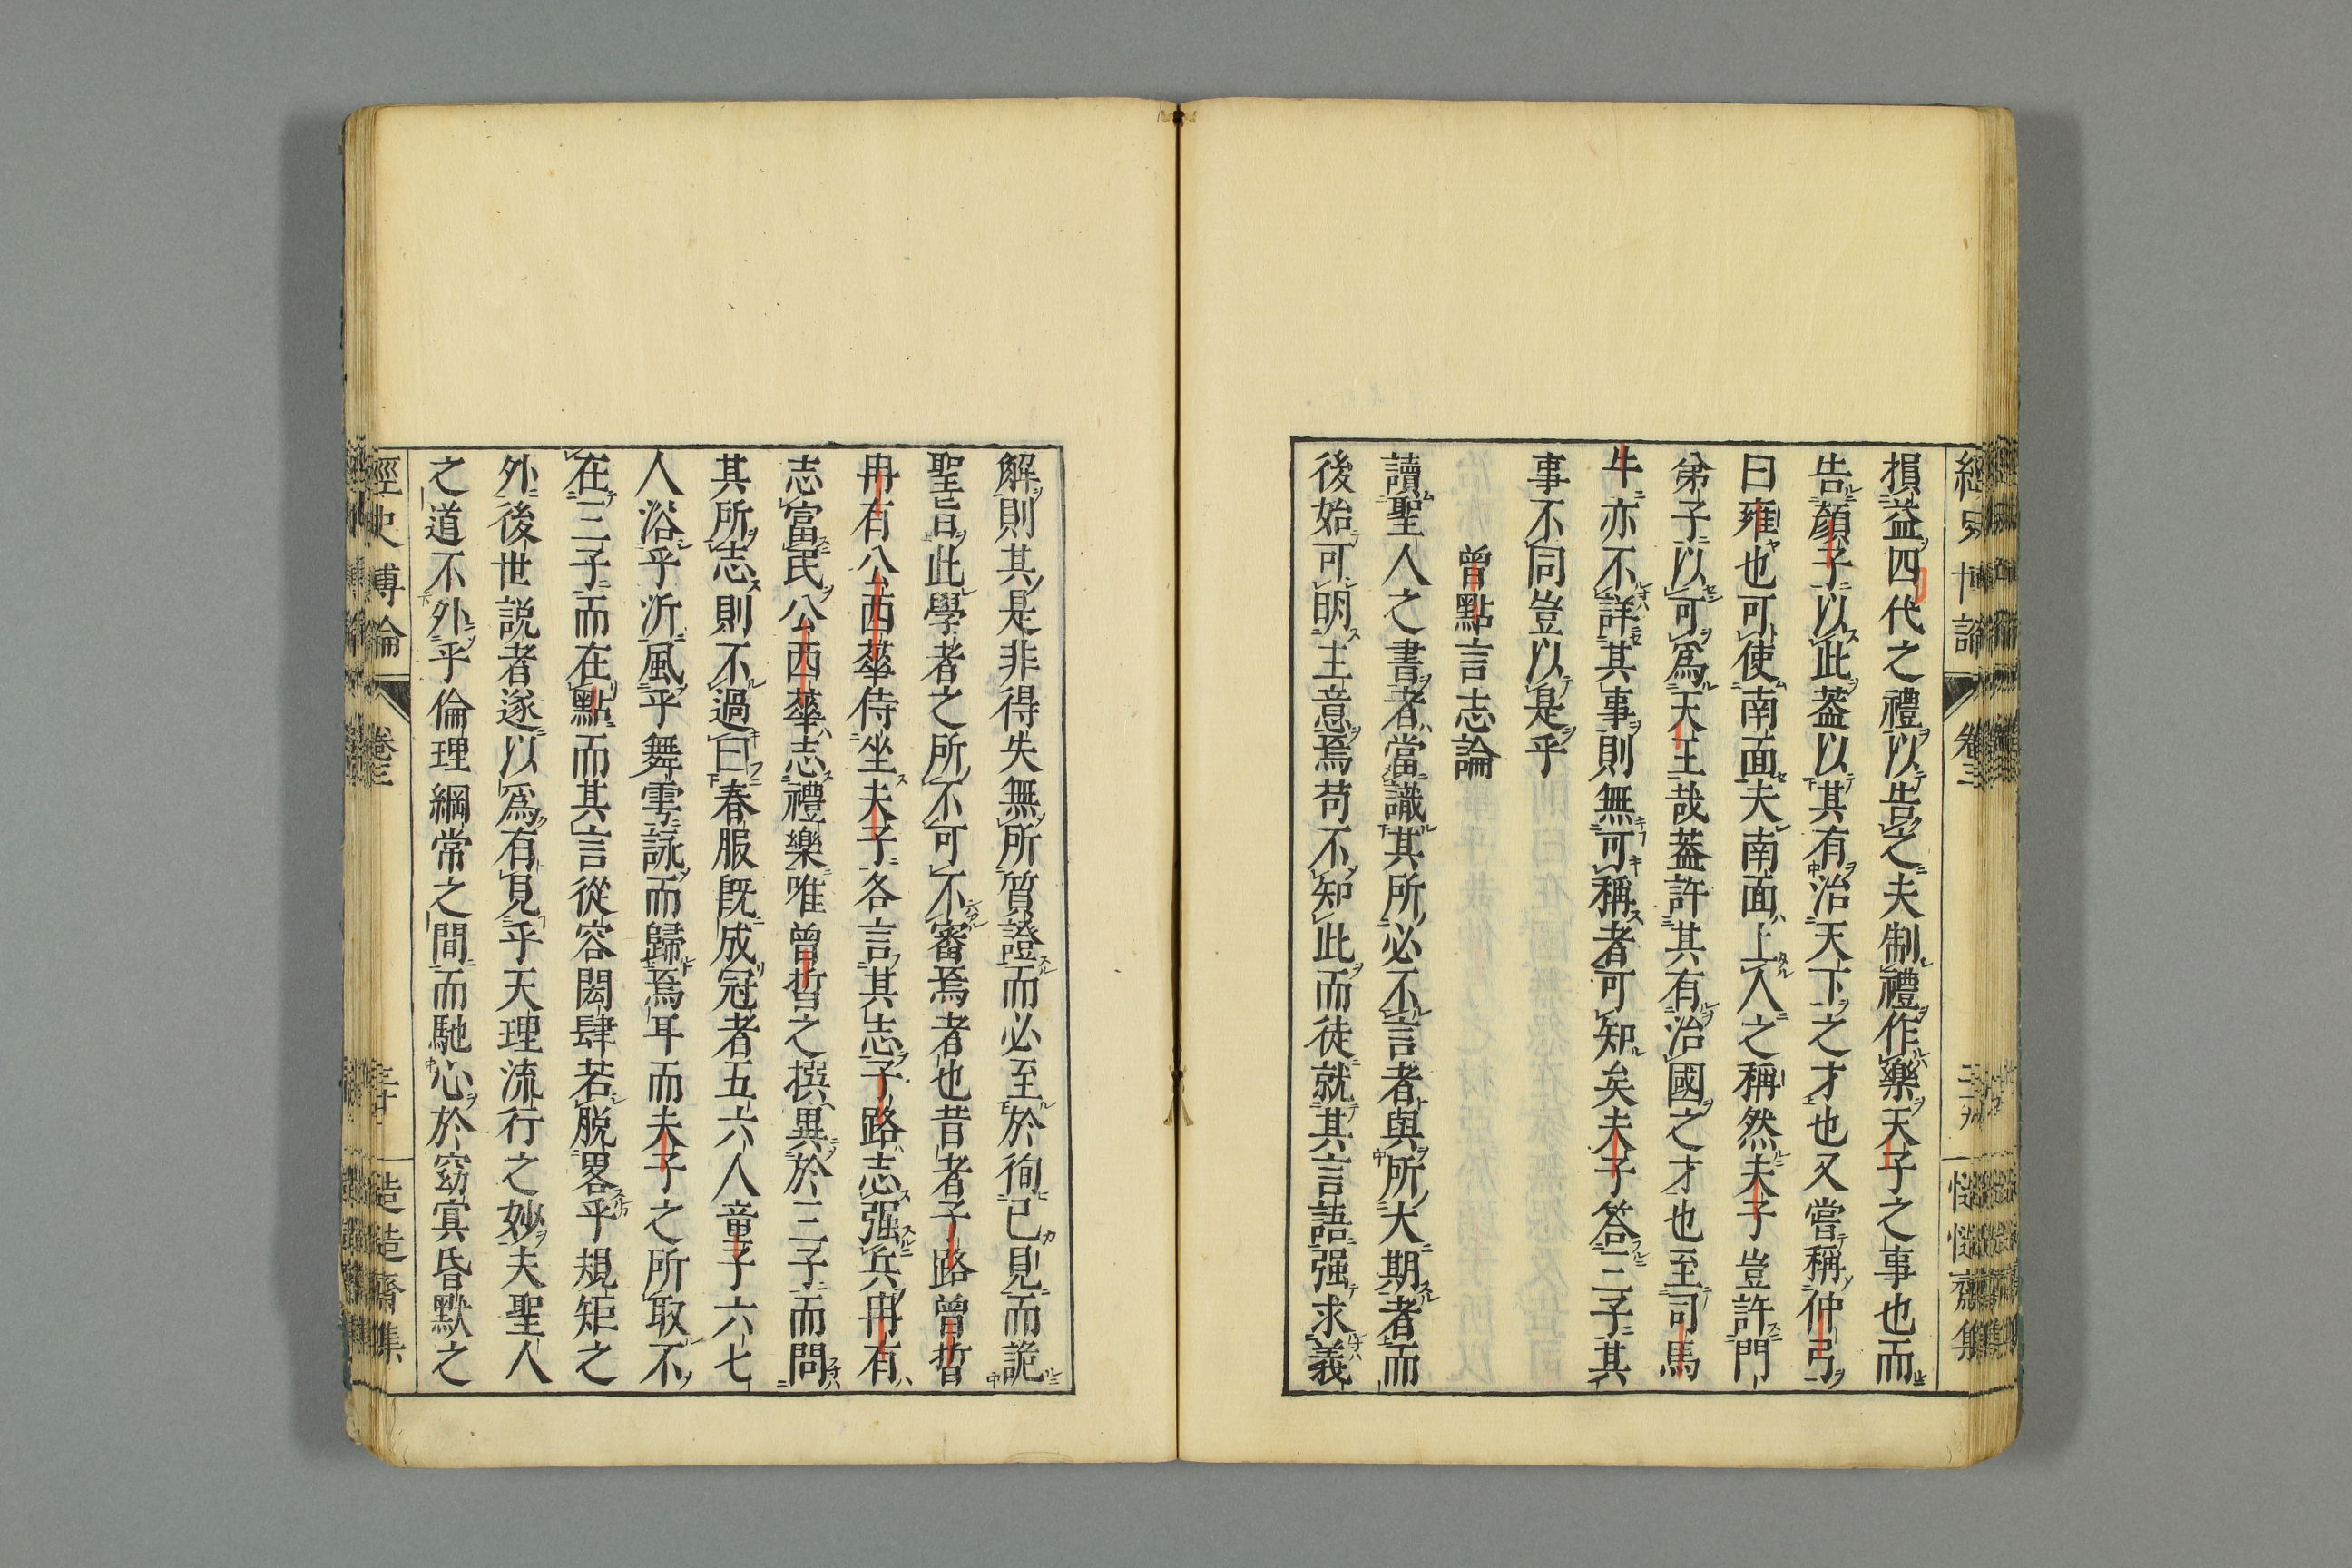 損益四代之禮以告之夫制禮作樂天子之事也而
告顏子以此蓋以其有治天下之才也又嘗稱仲弓
曰雍也可使南面夫南面上人之稱然夫子豈許門
弟子以可爲天王哉蓋許其有治國之才也至司馬
牛亦不詳其事則無可稱者可知矣夫子答三子其
事不同豈以是乎
曾點言志論
讀聖人之書者當識其所必不言者與所大期者而
後始可明主意焉苟不知此而徒就其言語强求義
解則其是非得失無所質證而必至於徇己見而詭
聖旨此學者之所不可不審焉者也昔者子路曾晳
冉有公西華侍坐夫子各言其志子路志强兵冉有
志富民公西華志禮樂唯曾晳之撰異於三子而問
其所志則不過曰春服既成冠者五六人童子六七
人浴乎沂風乎舞雩詠而歸焉耳而夫子之所取不
在三子而在點而其言從容閎肆若脱畧乎規矩之
外後世説者遂以爲有見乎天理流行之妙夫聖人
之道不外乎倫理綱常之間而馳心於窈冥昏默之
經史博論
卷三
三十
慥慥齋集